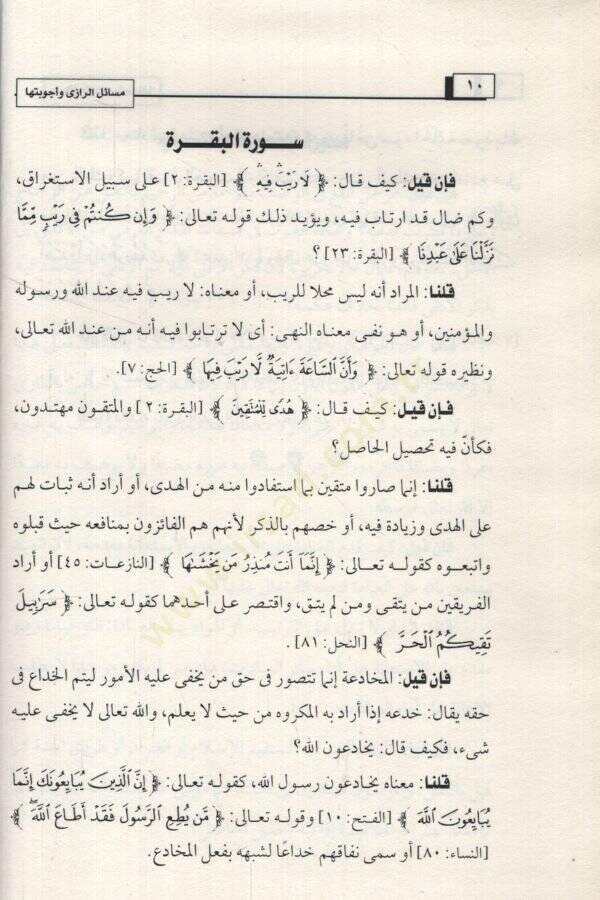 ١٠
مسائل الرازى وأجوبتها
سورة البقرة
فإن قيل: كيف قال: ﴿ لَا رَيْبَ فِيهِ ﴾ [البقرة: ٢] على سبيل الاستغراق،
وكم ضال قد ارتاب فيه، ويؤيد ذلك قوله تعالى: ﴿ وَإِن كُنتُمْ فِى رَيْبٍ مِّمَّا
نَزَّلْنَا عَلَىٰ عَبْدِنَا ﴾ [البقرة: ٢٣] ؟
قلنا: المراد أنه ليس محلا للريب، أو معناه: لا ريب فيه عند الله ورسوله
والمؤمنين، أو هو نفى معناه النهى: أى لا ترتابوا فيه أنه من عند الله تعالى،
ونظيره قوله تعالى: ﴿ وَأَنَّ السَّاعَةَ ءَاتِيَةٌ لَّا رَيْبَ فِيهَا ﴾ [الحج: ٧].
فإن قيل: كيف قال: ﴿ هُدًى لِّلْمُتَّقِينَ ﴾ [البقرة: ٢] والمتقون مهتدون،
فكأنّ فيه تحصيل الحاصل؟
قلنا: إنما صاروا متقين بما استفادوا منه من الهدى، أو أراد أنه ثبات لهم
على الهدى وزيادة فيه، أو خصهم بالذكر لأنهم هم الفائزون بمنافعه حيث قبلوه
واتبعوه كقوله تعالى: ﴿ إِنَّمَا أَنتَ مُنذِرُ مَن يَخْشَىٰهَا ﴾ [النازعات: ٤٥] أو أراد
الفريقين من يتقى ومن لم يتق، واقتصر على أحدهما كقوله تعالى: ﴿ سَرَٰبِيلَ
تَقِيكُمُ ٱلْحَرَّ ﴾ [النحل: ٨١] .
فإن قيل: المخادعة إنما تتصور فى حق من يخفى عليه الأمور ليتم الخداع فى
حقه يقال: خدعه إذا أراد به المكروه من حيث لا يعلم، والله تعالى لا يخفى عليه
شىء، فكيف قال: يخادعون الله؟
قلنا: معناه يخادعون رسول الله، كقوله تعالى: ﴿ إِنَّ ٱلَّذِينَ يُبَايِعُونَكَ إِنَّمَا
يُبَايِعُونَ ٱللَّهَ ﴾ [الفتح: ١٠] وقوله تعالى: ﴿ مَّن يُطِعِ ٱلرَّسُولَ فَقَدْ أَطَاعَ ٱللَّهَ ﴾
[النساء: ٨٠] أو سمى نفاقهم خداعًا لشبهه بفعل المخادع.